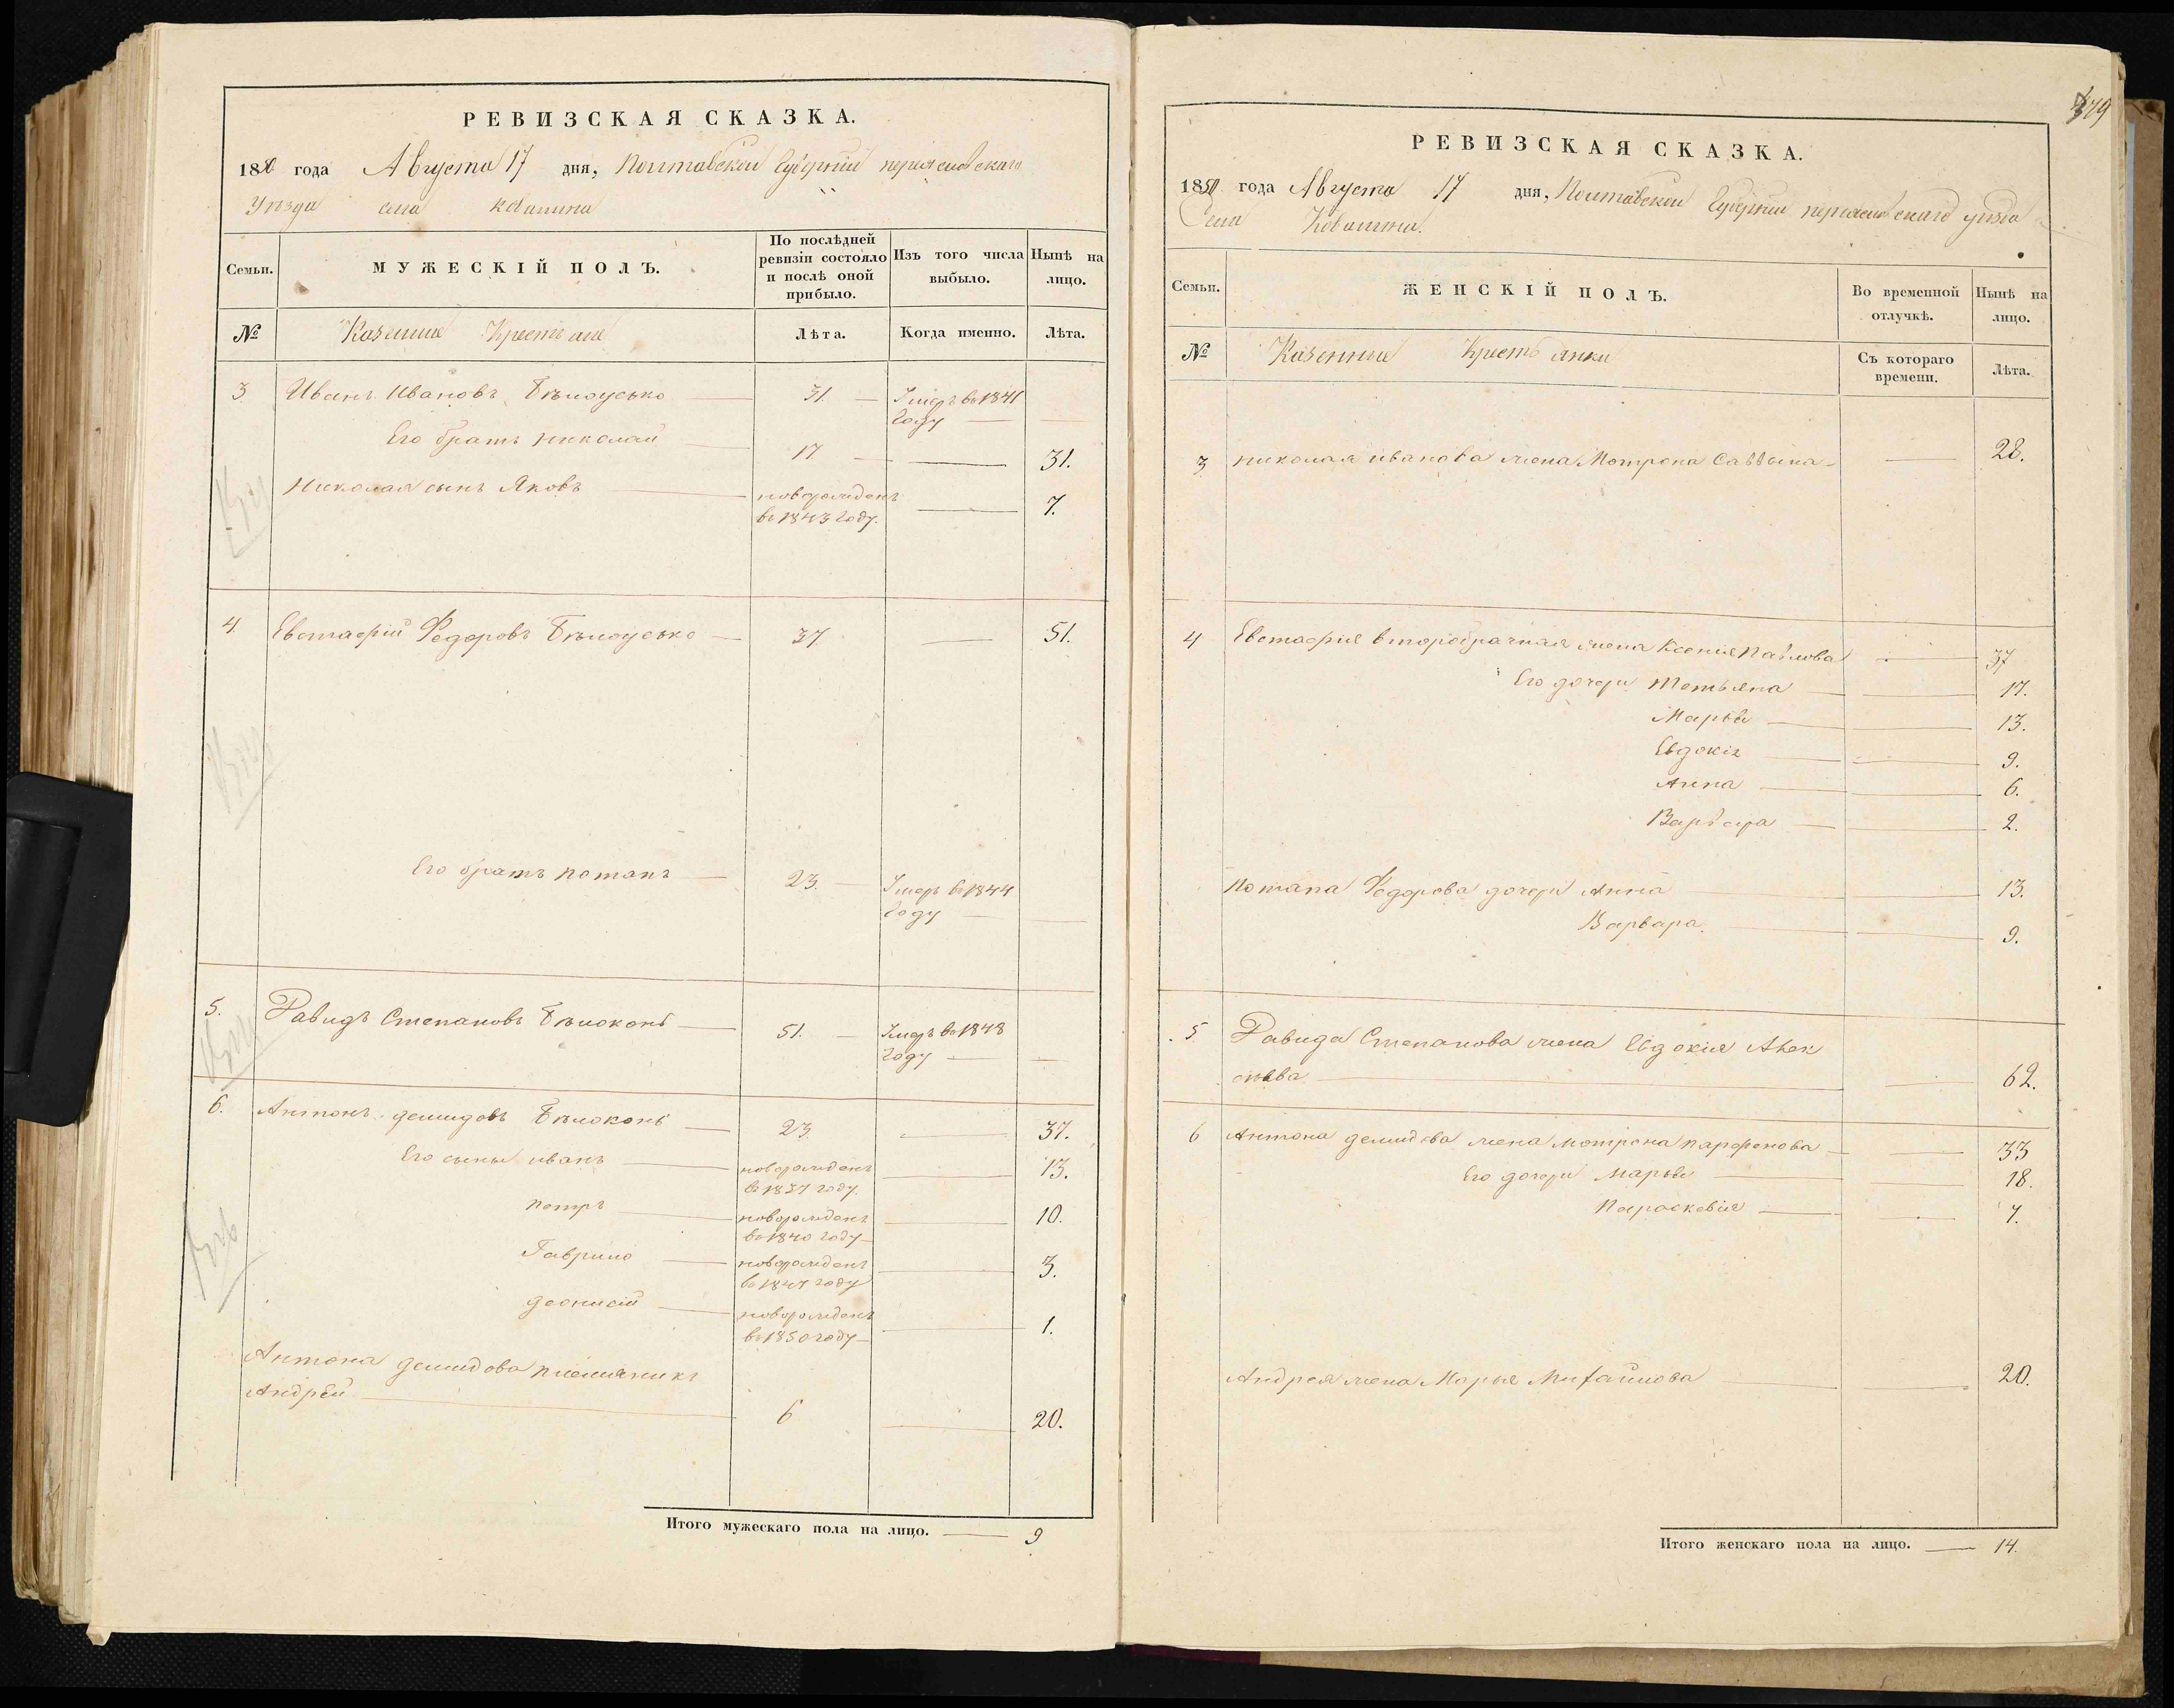 РЕВИЗСКАЯ СКАЗКА.
1850 года Августа 17 дня, Полтавской Губернии переяславскаго
Уезда села
Семьи.
МУЖЕСКІЙ ПОЛЪ.
По послѣдней ревизіи состояло и послѣ оной прибыло.
Изъ того числа выбыло.
Нынѣ на лицо.
№ Казенние Крестьяне
Лѣта.
Когда именно.
Лѣта.
3 Иванъ Ивановъ Бѣлоусько 31. Умеръ въ 1841
Году
Его братъ николай 17 31.
Николая сынъ Яковъ новорожденъ
въ 1843 году. 7.
4. Евстафій Федоровъ Бѣлоусько 37. 51.
Его братъ потапъ 23. Умеръ въ 1844
Году
5. Давидъ Степановъ Бѣлоконь 51. Умеръ въ 1848
Году
6. Антонъ демидовъ Бѣлоконь 23. 37.
Его сыны иванъ новорожденъ 13.
въ 1837 году.
петръ новорожденъ 10.
въ 1840 году
Гаврило новорожденъ 3.
въ 1847 году
деонисій новорожденъ
въ 1850 году 1.
Антона демидова племяникъ
Андрей 6 20.
Итого мужескаго пола на лицо. 9
РЕВИЗСКАЯ СКАЗКА.
1850 года Августа 17 дня, Полтавской Губернии переяславскаго уезда
Села
Семьи.
ЖЕНСКІЙ ПОЛЪ.
Во временной отлучкѣ.
Нынѣ на лицо.
№ Казенние Крестьянки
Съ котораго времени.
Лѣта.
3 николая иванова жена Мотрона Саввына 28.
4 Евстафия второбрачная жена Ксения Павлова 37
Его дочери Татьяна 17.
Марья 13.
Евдокія 9.
Анна 6.
Варвара 2.
потапа Федорова дочери Анна 13.
Варвара. 9.
5. Давида Степанова жена Евдокия Алек
сѣева 62.
6 Антона демидова жена мотрона парфенова 33
Его дочери марья 18.
Параскевія 7.
Андрея жена Марья Михайлова 20.
Итого женскаго пола на лицо. 14.